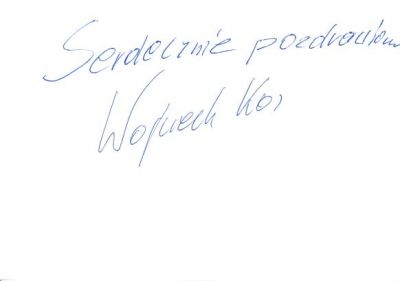 Serdecznie pozdrawiam
Wojciech Kos